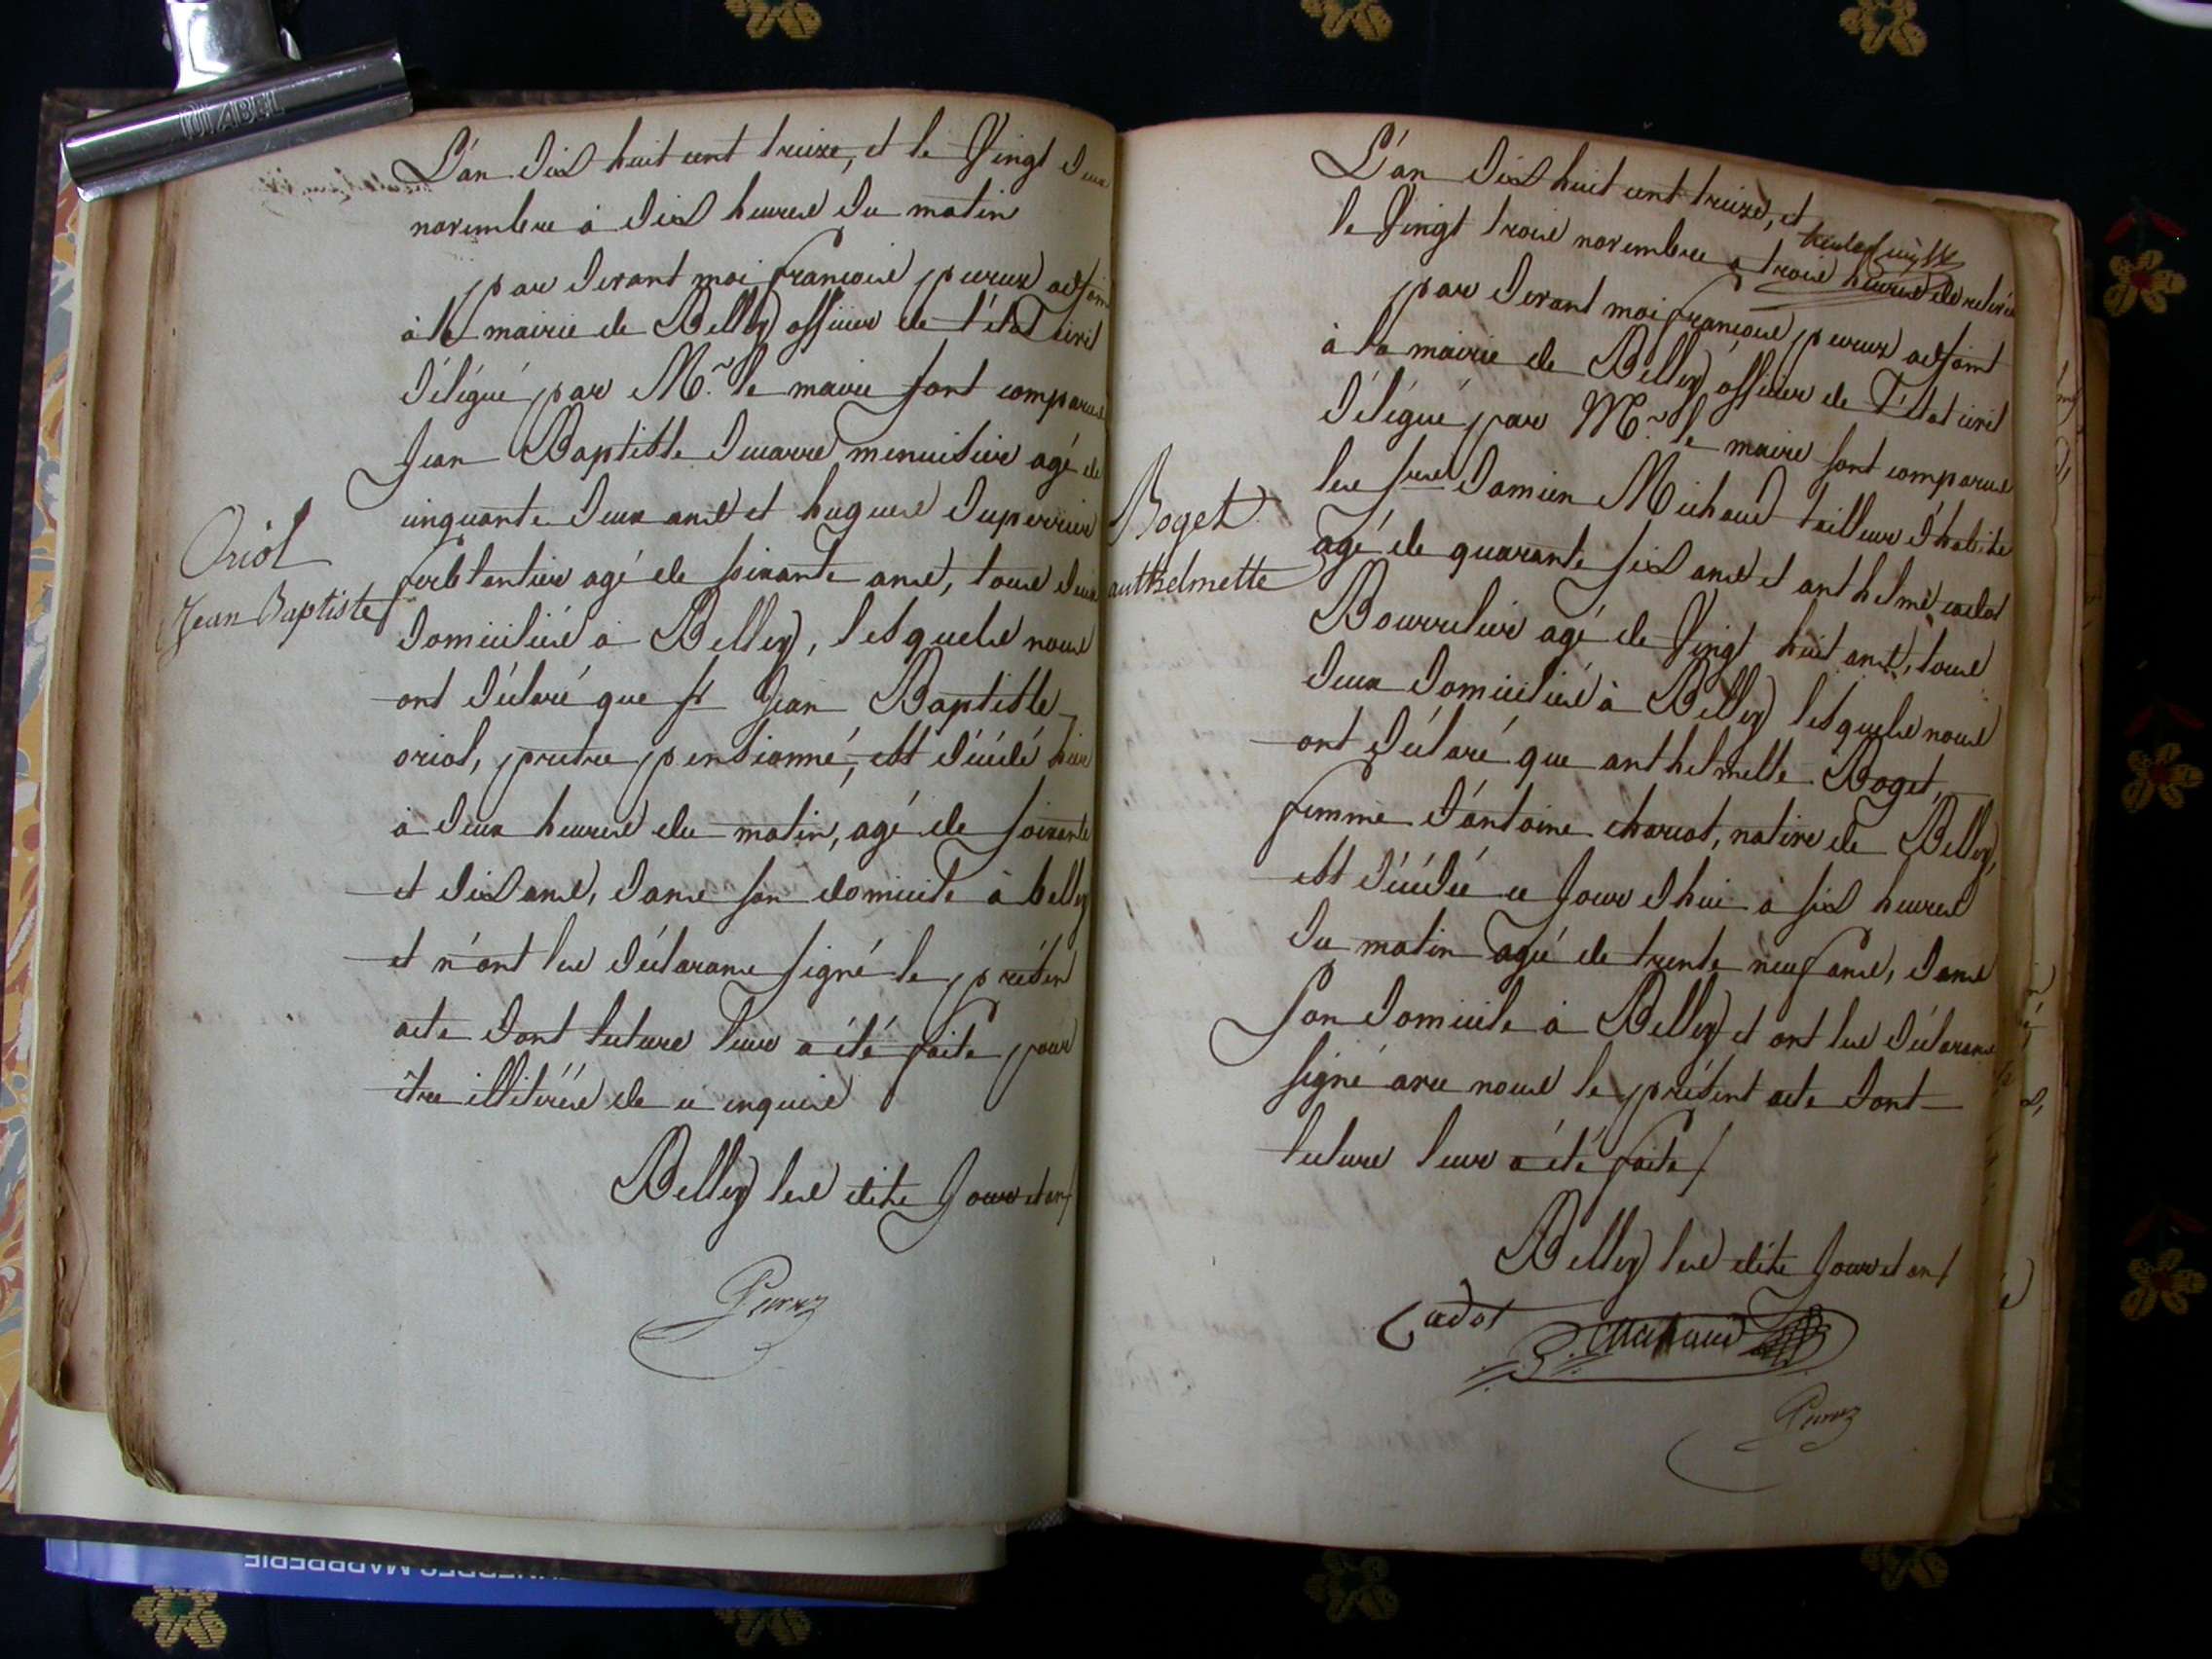 DIABEL
L'an dix huit cent treize, et le Vingt deux
novembre à dix heures du matin
par devant moi françois peruz adjoint
à la mairie de Belley officier de l'état civil
délégué par Mr. le maire sont comparus
Jean Baptiste Ducarre menuisier agé de
cinquante deux ans et hugues Duperrier
ferblantier agé de soixante ans, tous deux
domiciliés à Belley, lesquels nous
ont déclaré que sr Jean Baptiste
oriol, pretre pensionné, est décédé hier
à deux heures du matin, agé de soixante
et dix ans, dans son domicile à belley
et n'ont les déclarans signé le présent
acte dont lecture leur a été faite pour
être illitérés de ce enquis
Belley les dits jour et an
Peruz
Oriol
Jean Baptiste
L'an dix huit cent treize, et
le Vingt trois novembre à trois heures de relevée
par devant moi françois peruz adjoint
à la mairie de Belley officier de l'état civil
délégué par Mr. le maire sont comparus
les srs Damien Michaud tailleur d'habits
agé de quarante six ans et anthelme cadot
Bourrelier agé de Vingt huit ans, tous
deux domiciliés à Belley lesquels nous
ont déclaré que anthelmette Boget,
femme d'antoine charcot, native de Belley,
est décédée ce jour d'hui à six heures
du matin agée de trente neuf ans, dans
son domicile à Belley et ont les déclarans
signé avec nous le présent acte dont
lecture leur a été faite
Belley les dits jour et an
Cadot
D. Michaud
Peruz
Boget
anthelmette